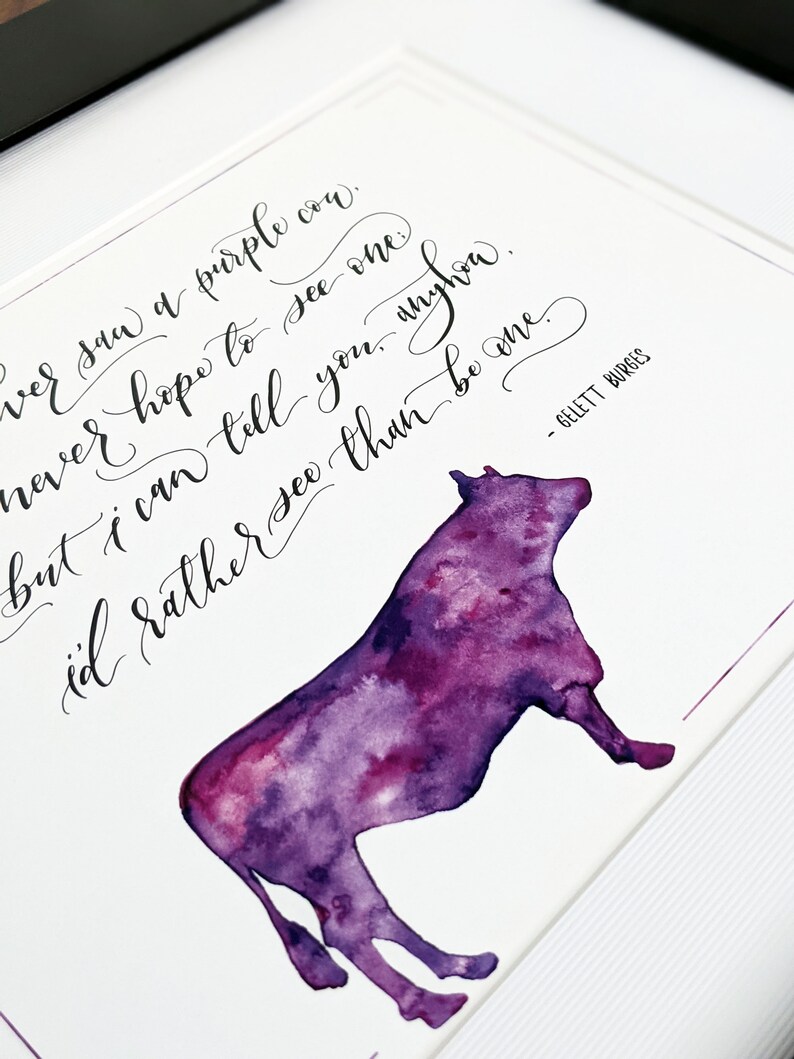 ver saw a purple cow.
never hope to see one;
but i can tell you, anyhow,
i'd rather see than be one.
- GELETT BURGES